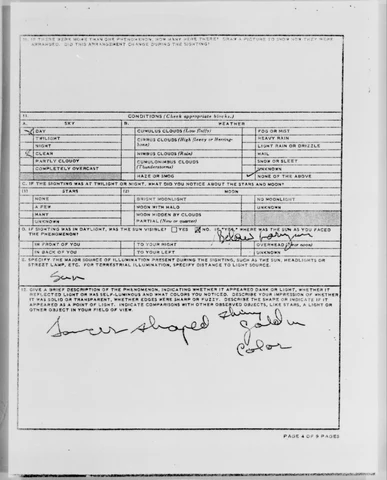 10. IF THERE WERE MORE THAN ONE PHENOMENON, HOW MANY WERE THERE? DRAW A PICTURE TO SHOW HOW THEY WERE
ARRANGED. DID THIS ARRANGEMENT CHANGE DURING THE SIGHTING?
11. CONDITIONS (Check appropriate blocks.)
A. SKY B. WEATHER
DAY CUMULUS CLOUDS (Low fluffy) FOG OR MIST
TWILIGHT CIRRUS CLOUDS (High fleecy or Herring-bone) HEAVY RAIN
NIGHT LIGHT RAIN OR DRIZZLE
CLEAR NIMBUS CLOUDS (Rain) HAIL
PARTLY CLOUDY CUMULONIMBUS CLOUDS SNOW OR SLEET
COMPLETELY OVERCAST (Thunderstorms) UNKNOWN
HAZE OR SMOG NONE OF THE ABOVE
C. IF THE SIGHTING WAS AT TWILIGHT OR NIGHT, WHAT DID YOU NOTICE ABOUT THE STARS AND MOON?
(1) STARS (2) MOON
NONE BRIGHT MOONLIGHT NO MOONLIGHT
A FEW MOON WITH HALO UNKNOWN
MANY MOON HIDDEN BY CLOUDS
UNKNOWN PARTIAL (New or quarter)
D. IF SIGHTING WAS IN DAYLIGHT, WAS THE SUN VISIBLE? YES NO. IF "YES" WHERE WAS THE SUN AS YOU FACED
THE PHENOMENON? Below horizon
IN FRONT OF YOU TO YOUR RIGHT OVERHEAD (Near noon)
IN BACK OF YOU TO YOUR LEFT UNKNOWN
E. SPECIFY THE MAJOR SOURCE OF ILLUMINATION PRESENT DURING THE SIGHTING, SUCH AS THE SUN, HEADLIGHTS OR
STREET LAMP, ETC. FOR TERRESTRIAL ILLUMINATION, SPECIFY DISTANCE TO LIGHT SOURCE.
Sun
12. GIVE A BRIEF DESCRIPTION OF THE PHENOMENON, INDICATING WHETHER IT APPEARED DARK OR LIGHT, WHETHER IT
REFLECTED LIGHT OR WAS SELF-LUMINOUS AND WHAT COLORS YOU NOTICED. DESCRIBE YOUR IMPRESSION OF WHETHER
IT WAS SOLID OR TRANSPARENT, WHETHER EDGES WERE SHARP OR FUZZY. DESCRIBE THE SHAPE OR INDICATE IF IT
APPEARED AS A POINT OF LIGHT. INDICATE COMPARISONS WITH OTHER OBSERVED OBJECTS, LIKE STARS, A LIGHT OR
OTHER OBJECT IN YOUR FIELD OF VIEW.
Saucer shaped shiny
gold in
color
PAGE 4 OF 5 PAGES